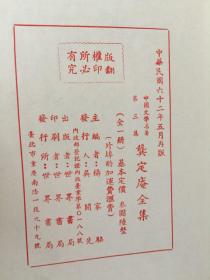 中華民國六十二年五月再版
中國文學名著
第三集
龔定庵全集
(全一册)基本定價 叁圓陸整
(外埠酌加運費滙費)
主編者：楊家駱
發行人：吳開先
內政部登記證內政臺業字第〇八一八號
出版者：世界書局
印刷者：世界書局
發行所：世界書局
臺北市重慶南路一段九十九號
版權所有
翻印必究